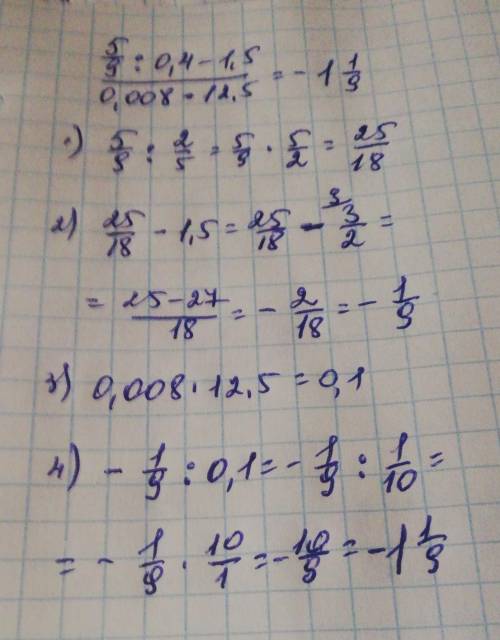 5/9 : 0,4 - 1,5 / 0,008 · 12,5 = - 1 1/9
1) 5/9 : 2/5 = 5/9 · 5/2 = 25/18
2) 25/18 - 1,5 = 25/18 - 9 3/2 =
= 25 - 27/18 = - 2/18 = - 1/9
3) 0,008 · 12,5 = 0,1
4) - 1/9 : 0,1 = - 1/9 : 1/10 =
= - 1/9 · 10/1 = - 10/9 = - 1 1/9